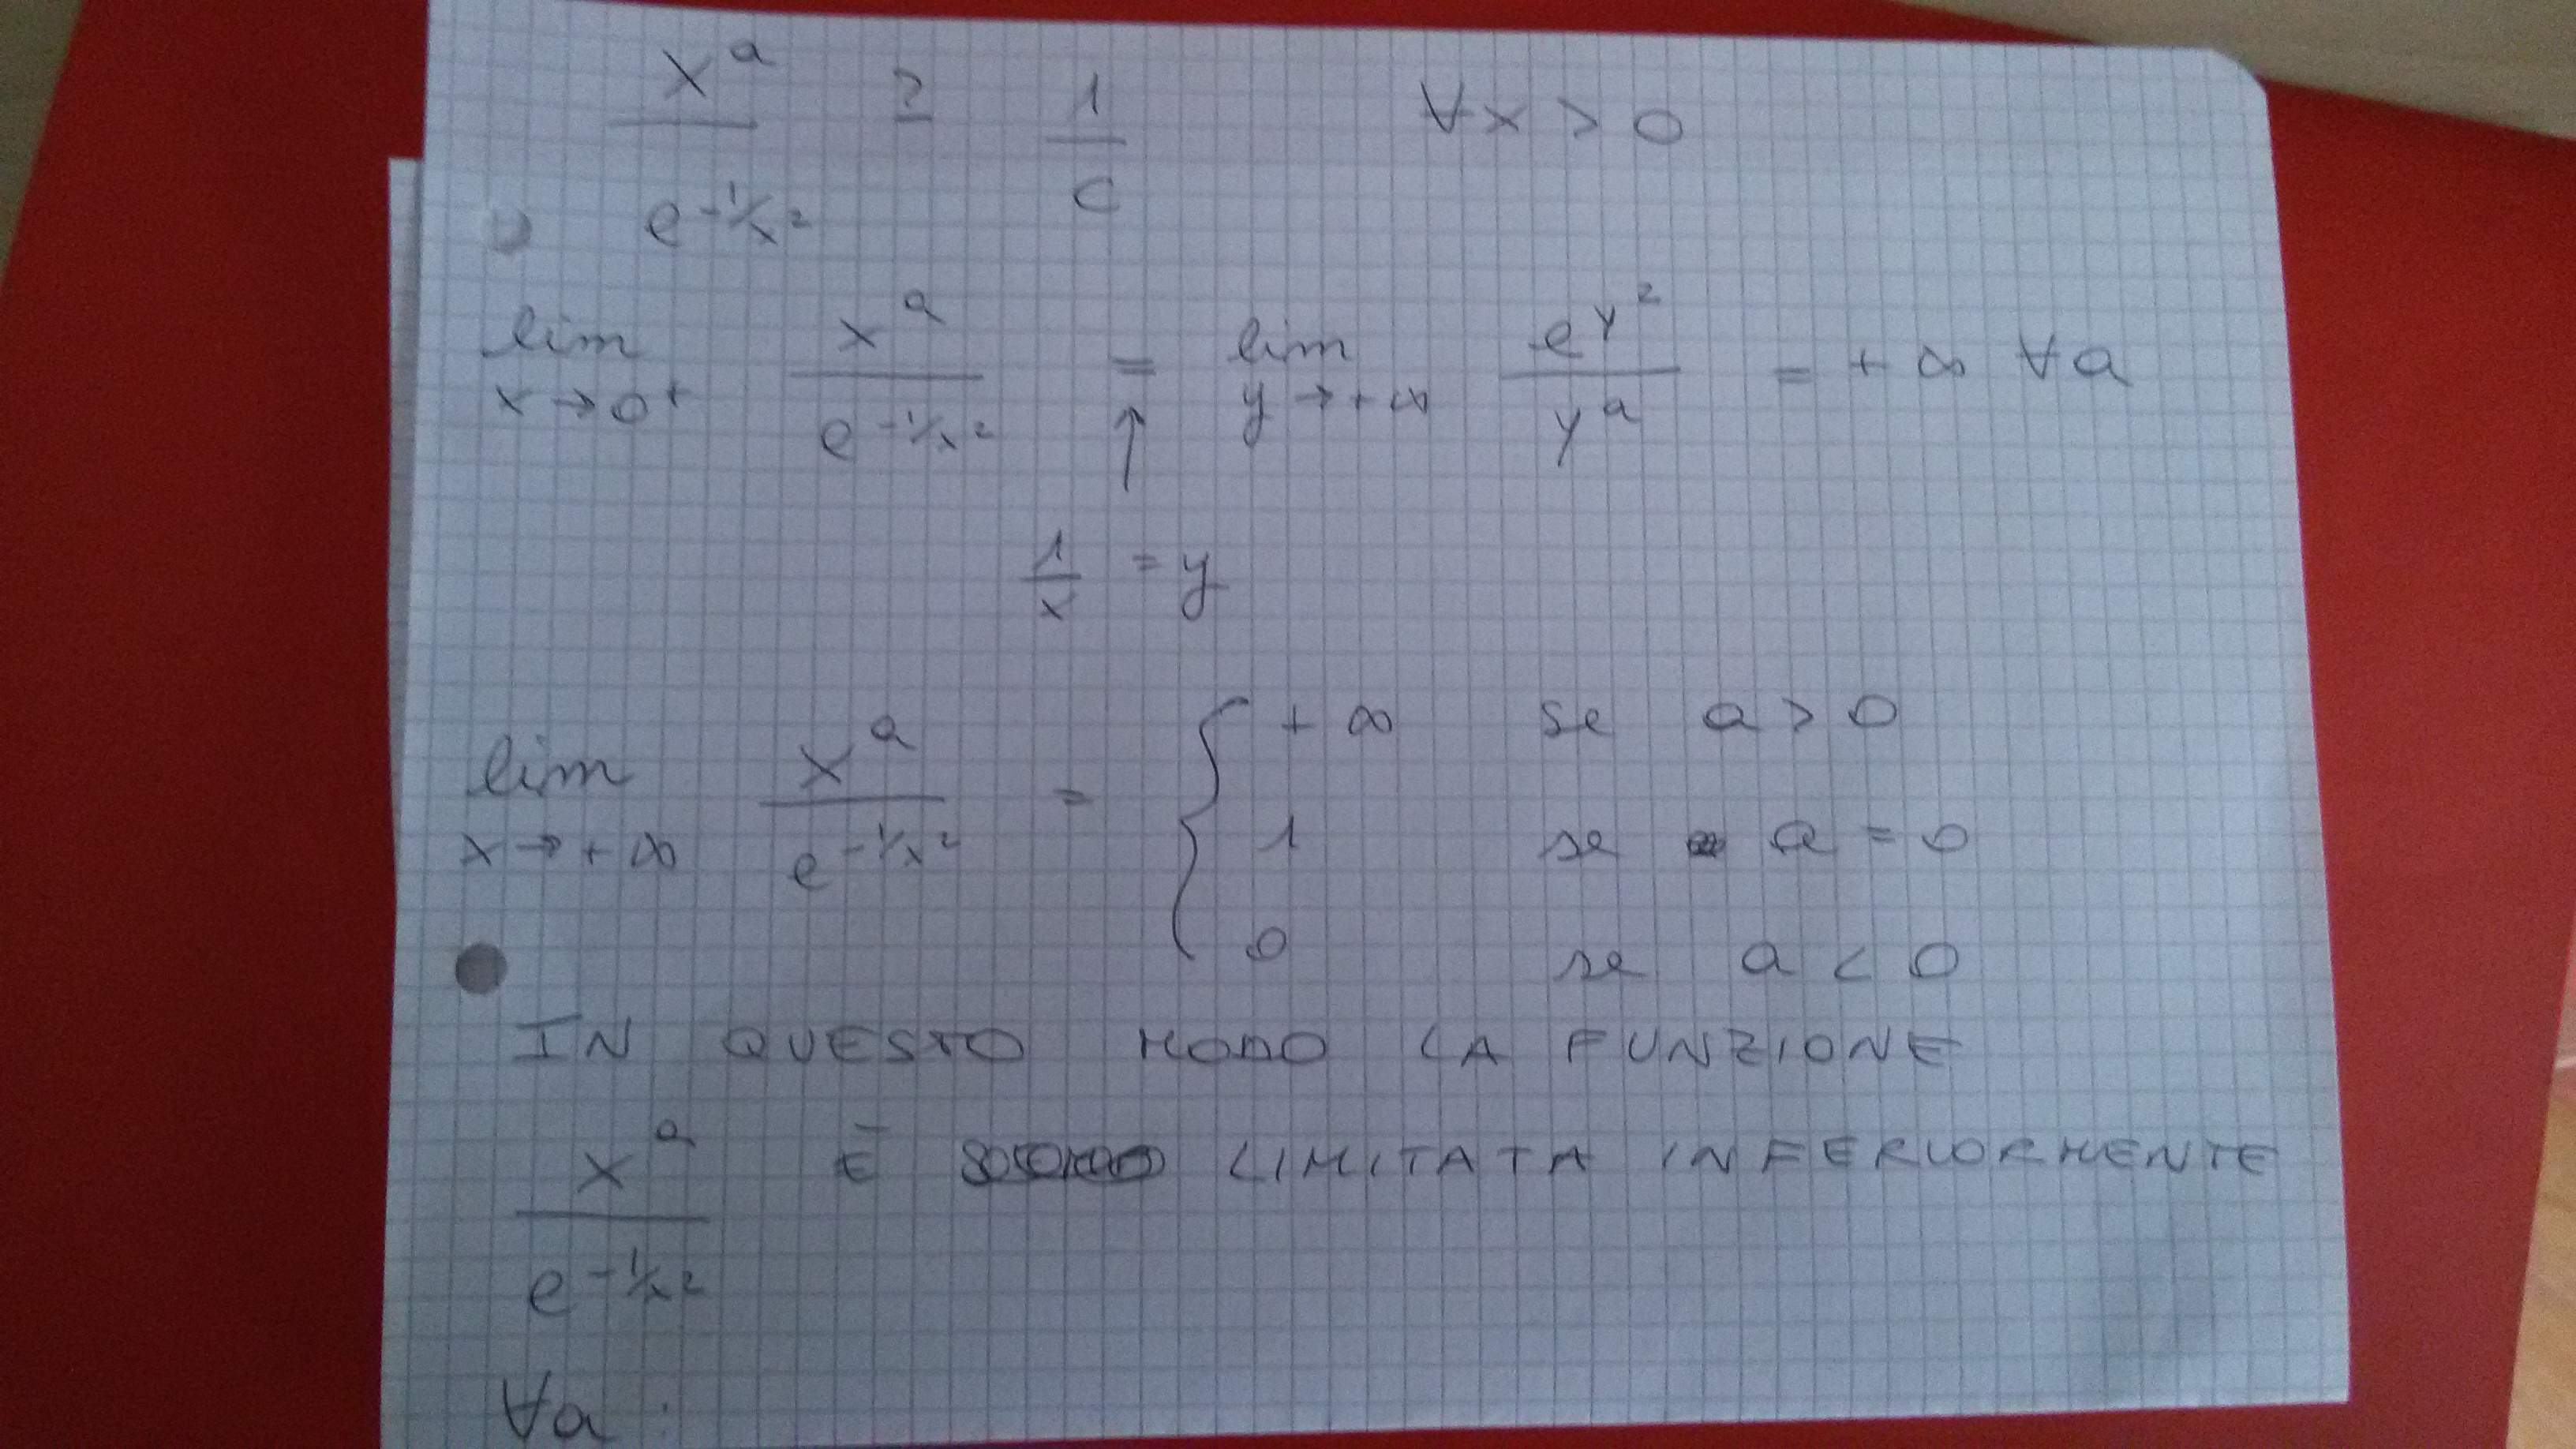 x^a / e^{-1/x^2} ≥ 1/C ∀x > 0
lim x→0+ x^a / e^{-1/x^2} = lim y→+∞ e^{y^2} / y^a = +∞ ∀a
↑
1/x = y
lim x→+∞ x^a / e^{-1/x^2} = { +∞ se a > 0
1 se a = 0
0 se a < 0
IN QUESTO MODO LA FUNZIONE
x^a / e^{-1/x^2} È LIMITATA INFERIORMENTE
∀a :